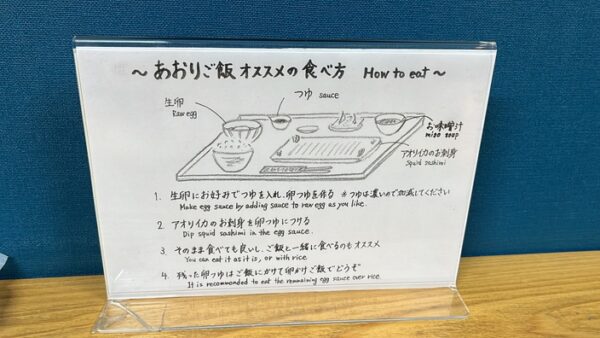 ～ あおりご飯 オススメの食べ方 How to eat ～
生卵
Raw egg
つゆ sauce
お味噌汁
miso soup
アオリイカのお刺身
Squid sashimi
1. 生卵にお好みでつゆを入れ、卵つゆを作る ※つゆは濃いので加減してください
Make egg sauce by adding sauce to raw egg as you like.
2. アオリイカのお刺身を卵つゆにつける
Dip squid sashimi in the egg sauce.
3. そのまま食べても良いし、ご飯と一緒に食べるのもオススメ
You can eat it as it is, or with rice
4. 残った卵つゆはご飯にかけて卵かけご飯でどうぞ
It is recommended to eat the remaining egg sauce over rice.